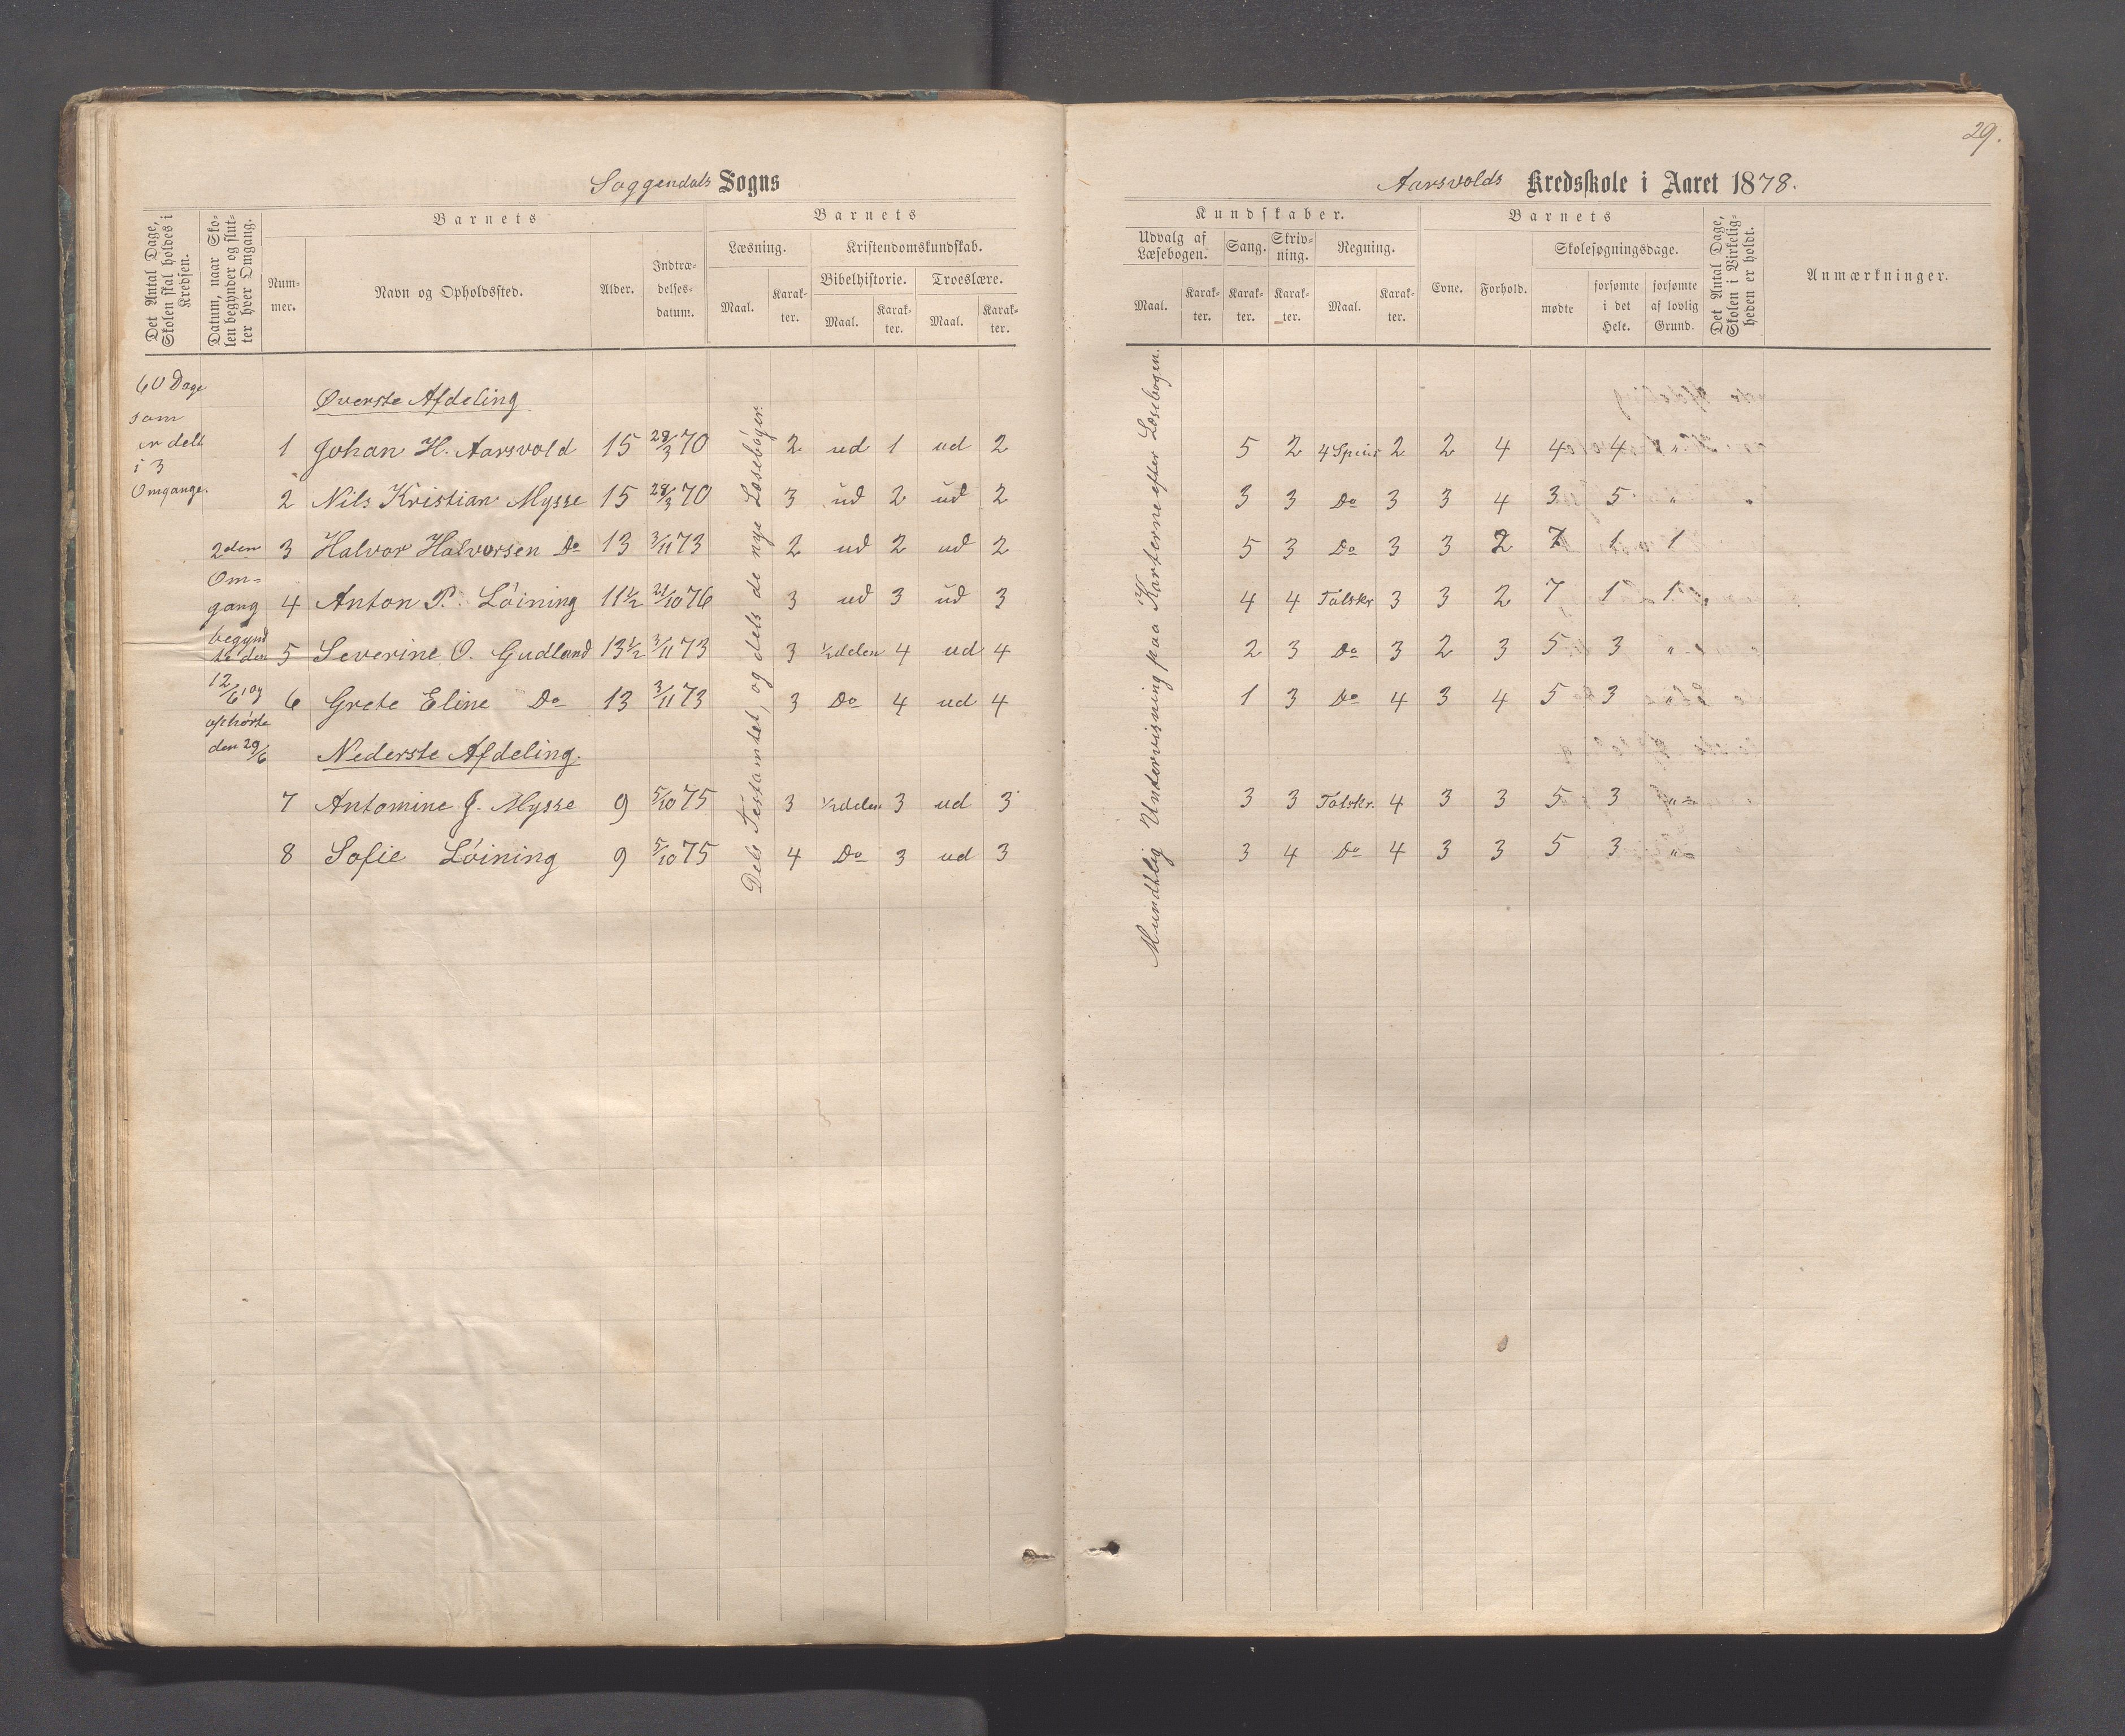 29.
Soggendals Sogns
Aarsvolds Kredsskole i Aaret 1878.
Det Antal Dage, Skolen skal holdes i Kredsen.
Datum, naar Skolen begynder og slutter hver Omgang.
Barnets
Nummer.
Navn og Opholdssted.
Alder.
Indtrædelsesdatum.
Barnets
Læsning.
Maal.
Karakter.
Kristendomskundskab.
Bibelhistorie.
Maal.
Karakter.
Troeslære.
Maal.
Karakter.
Kundskaber.
Udvalg af Læsebogen.
Maal.
Karakter.
Sang.
Karakter.
Skrivning.
Karakter.
Regning.
Maal.
Karakter.
Barnets
Evne.
Forhold.
Skolesøgningsdage.
mødte
forsømte i det Hele.
forsømte af lovlig Grund.
Det Antal Dage, Skolen i Virkeligheden er holdt.
Anmærkninger.
60 Dage
som
er delt
i 3
Omgange.
2den
Om=
gang
begynd
te den
12/6 og
ophørte
den 29/6
Dels Testamtet, og dels de nye Læsebøger.
Mundtlig Undervisning paa Karterne efter Læsebogen.
Øverste Afdeling
1 Johan H. Aarsvold 15 28/3 70 2 ud 1 ud 2 5 2 4 Spcier 2 2 4 4 4 "
2 Nils Kristian Mysse 15 28/3 70 3 ud 2 ud 2 3 3 Do 3 3 4 3 5 "
3 Halvor Halvorsen Do 13 3/11 73 2 ud 2 ud 2 5 3 Do 3 3 2 7 1 1
4 Anton P. Löining 11½ 21/10 76 3 ud 3 ud 3 4 4 Talskr 3 3 2 7 1 1
5 Severine O. Gudland 13½ 3/11 73 3 ½delen 4 ud 4 2 3 Do 3 2 3 5 3 "
6 Grete Eline Do 13 3/11 73 3 Do 4 ud 4 1 3 Do 4 3 4 5 3 "
Nederste Afdeling.
7 Antomine J. Mysse 9 5/10 75 3 ½delen 3 ud 3 3 3 Talskr. 4 3 3 5 3 "
8 Sofie Löining 9 5/10 75 4 Do 3 ud 3 3 4 Do 4 3 3 5 3 "